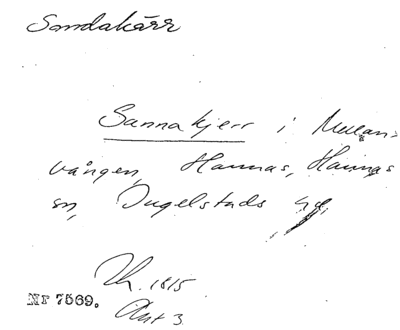 Sandakärr
Sannakjerr i Mellan-
vången, Hannas, Hannas
sn, Ingelstads hd,
Nr 7569.
Akt 3.